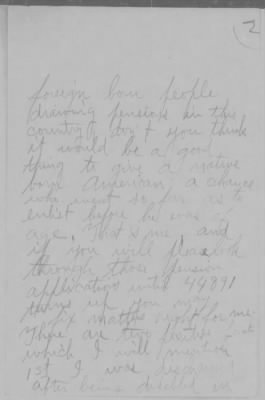 2
foreign born people
drawing pensions in this
country don't you think
it would be a good
thing to give a native
born American a chance
who went so far as to
enlist before he was of
age. That's me and
if you will please look
through those pension
applications until 44891
turns up you may
fix matters right for me.
There are two points
which I will mention
1st I was discharged
after being in